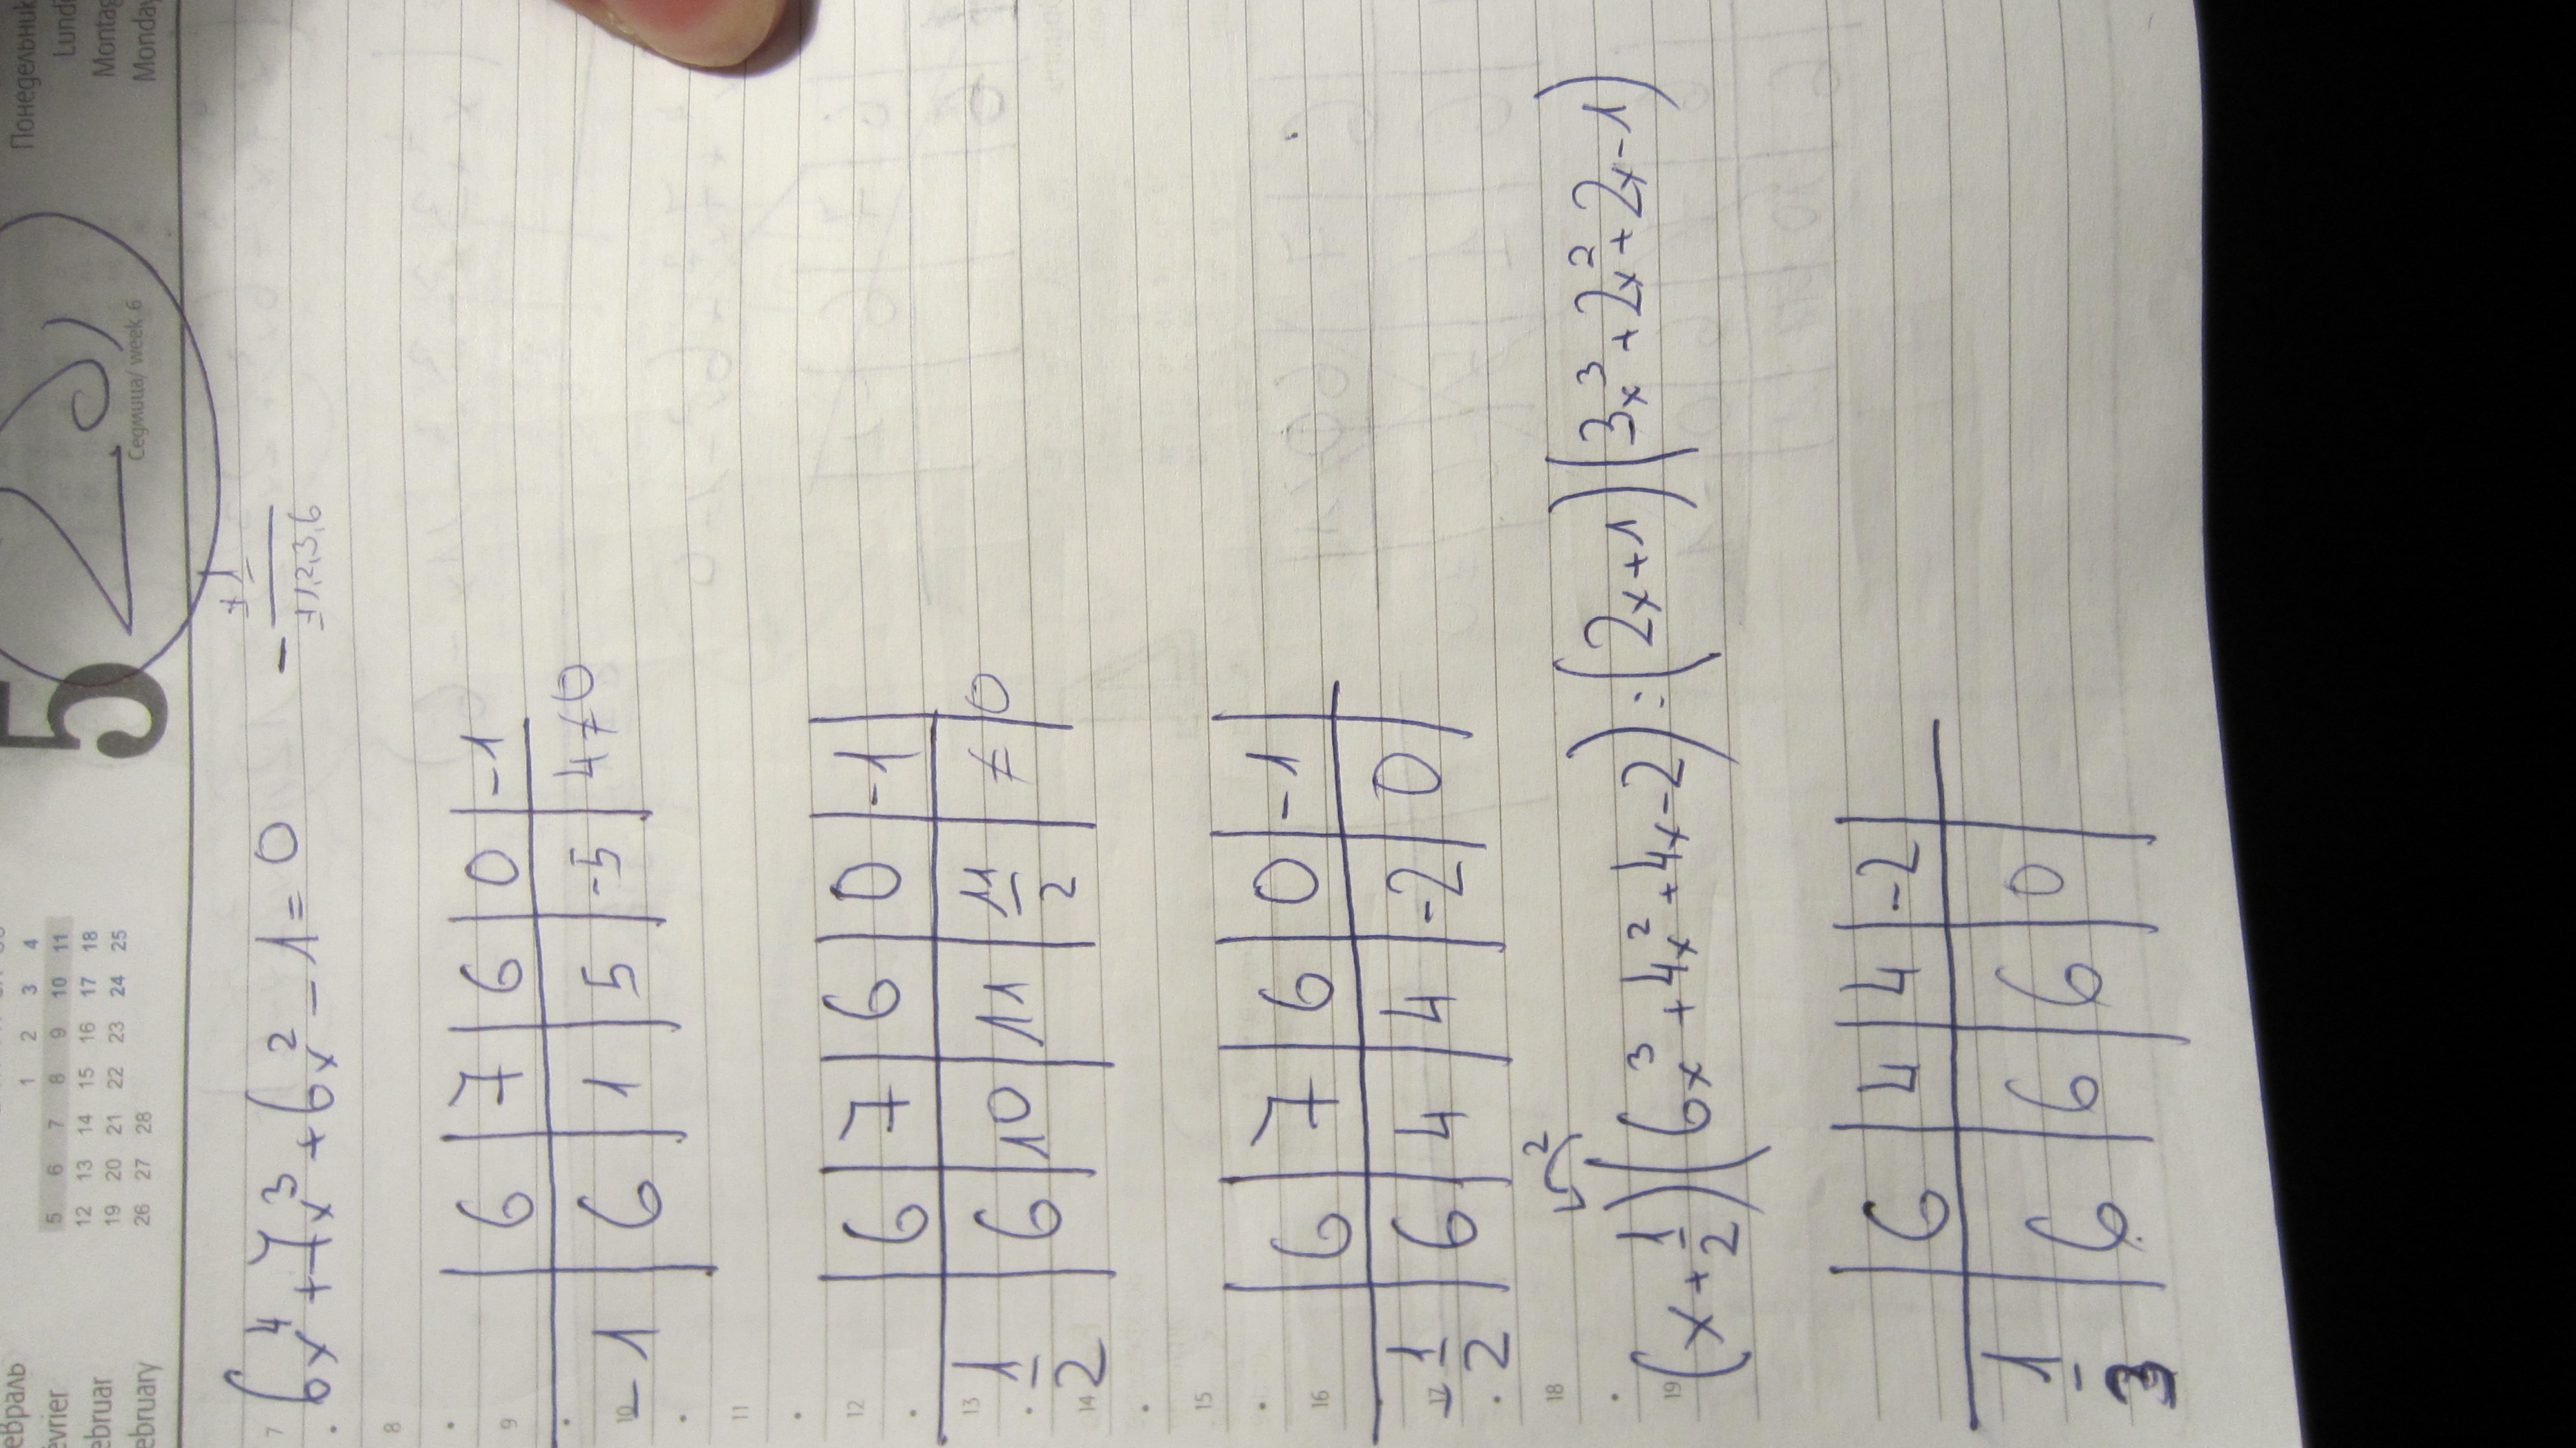 евраль
evrier
ebruar
ebruary
1 2 3 4
5 6 7 8 9 10 11
12 13 14 15 16 17 18
19 20 21 22 23 24 25
26 27 28
5
Понедельник
Lundi
Montag
Monday
Седмица/ week 6
2)
7
6x⁴+7x³+6x²-1=0 - ±1/±1,2,3,6
8
9
6 | 7 | 6 | 0 | -1
10
-1 | 6 | 1 | 5 | -5 | 4≠0
11
12
6 | 7 | 6 | 0 | -1
13
1/2 | 6 | 10 | 11 | 11/2 | ≠0
14
15
16
6 | 7 | 6 | 0 | -1
17
-1/2 | 6 | 4 | 4 | -2 | 0
18
2
19
(x+1/2)(6x³+4x²+4x-2):(2x+1)(3x³+2x²+2x-1)
6 | 4 | 4 | -2
1/3 | 6 | 6 | 6 | 0